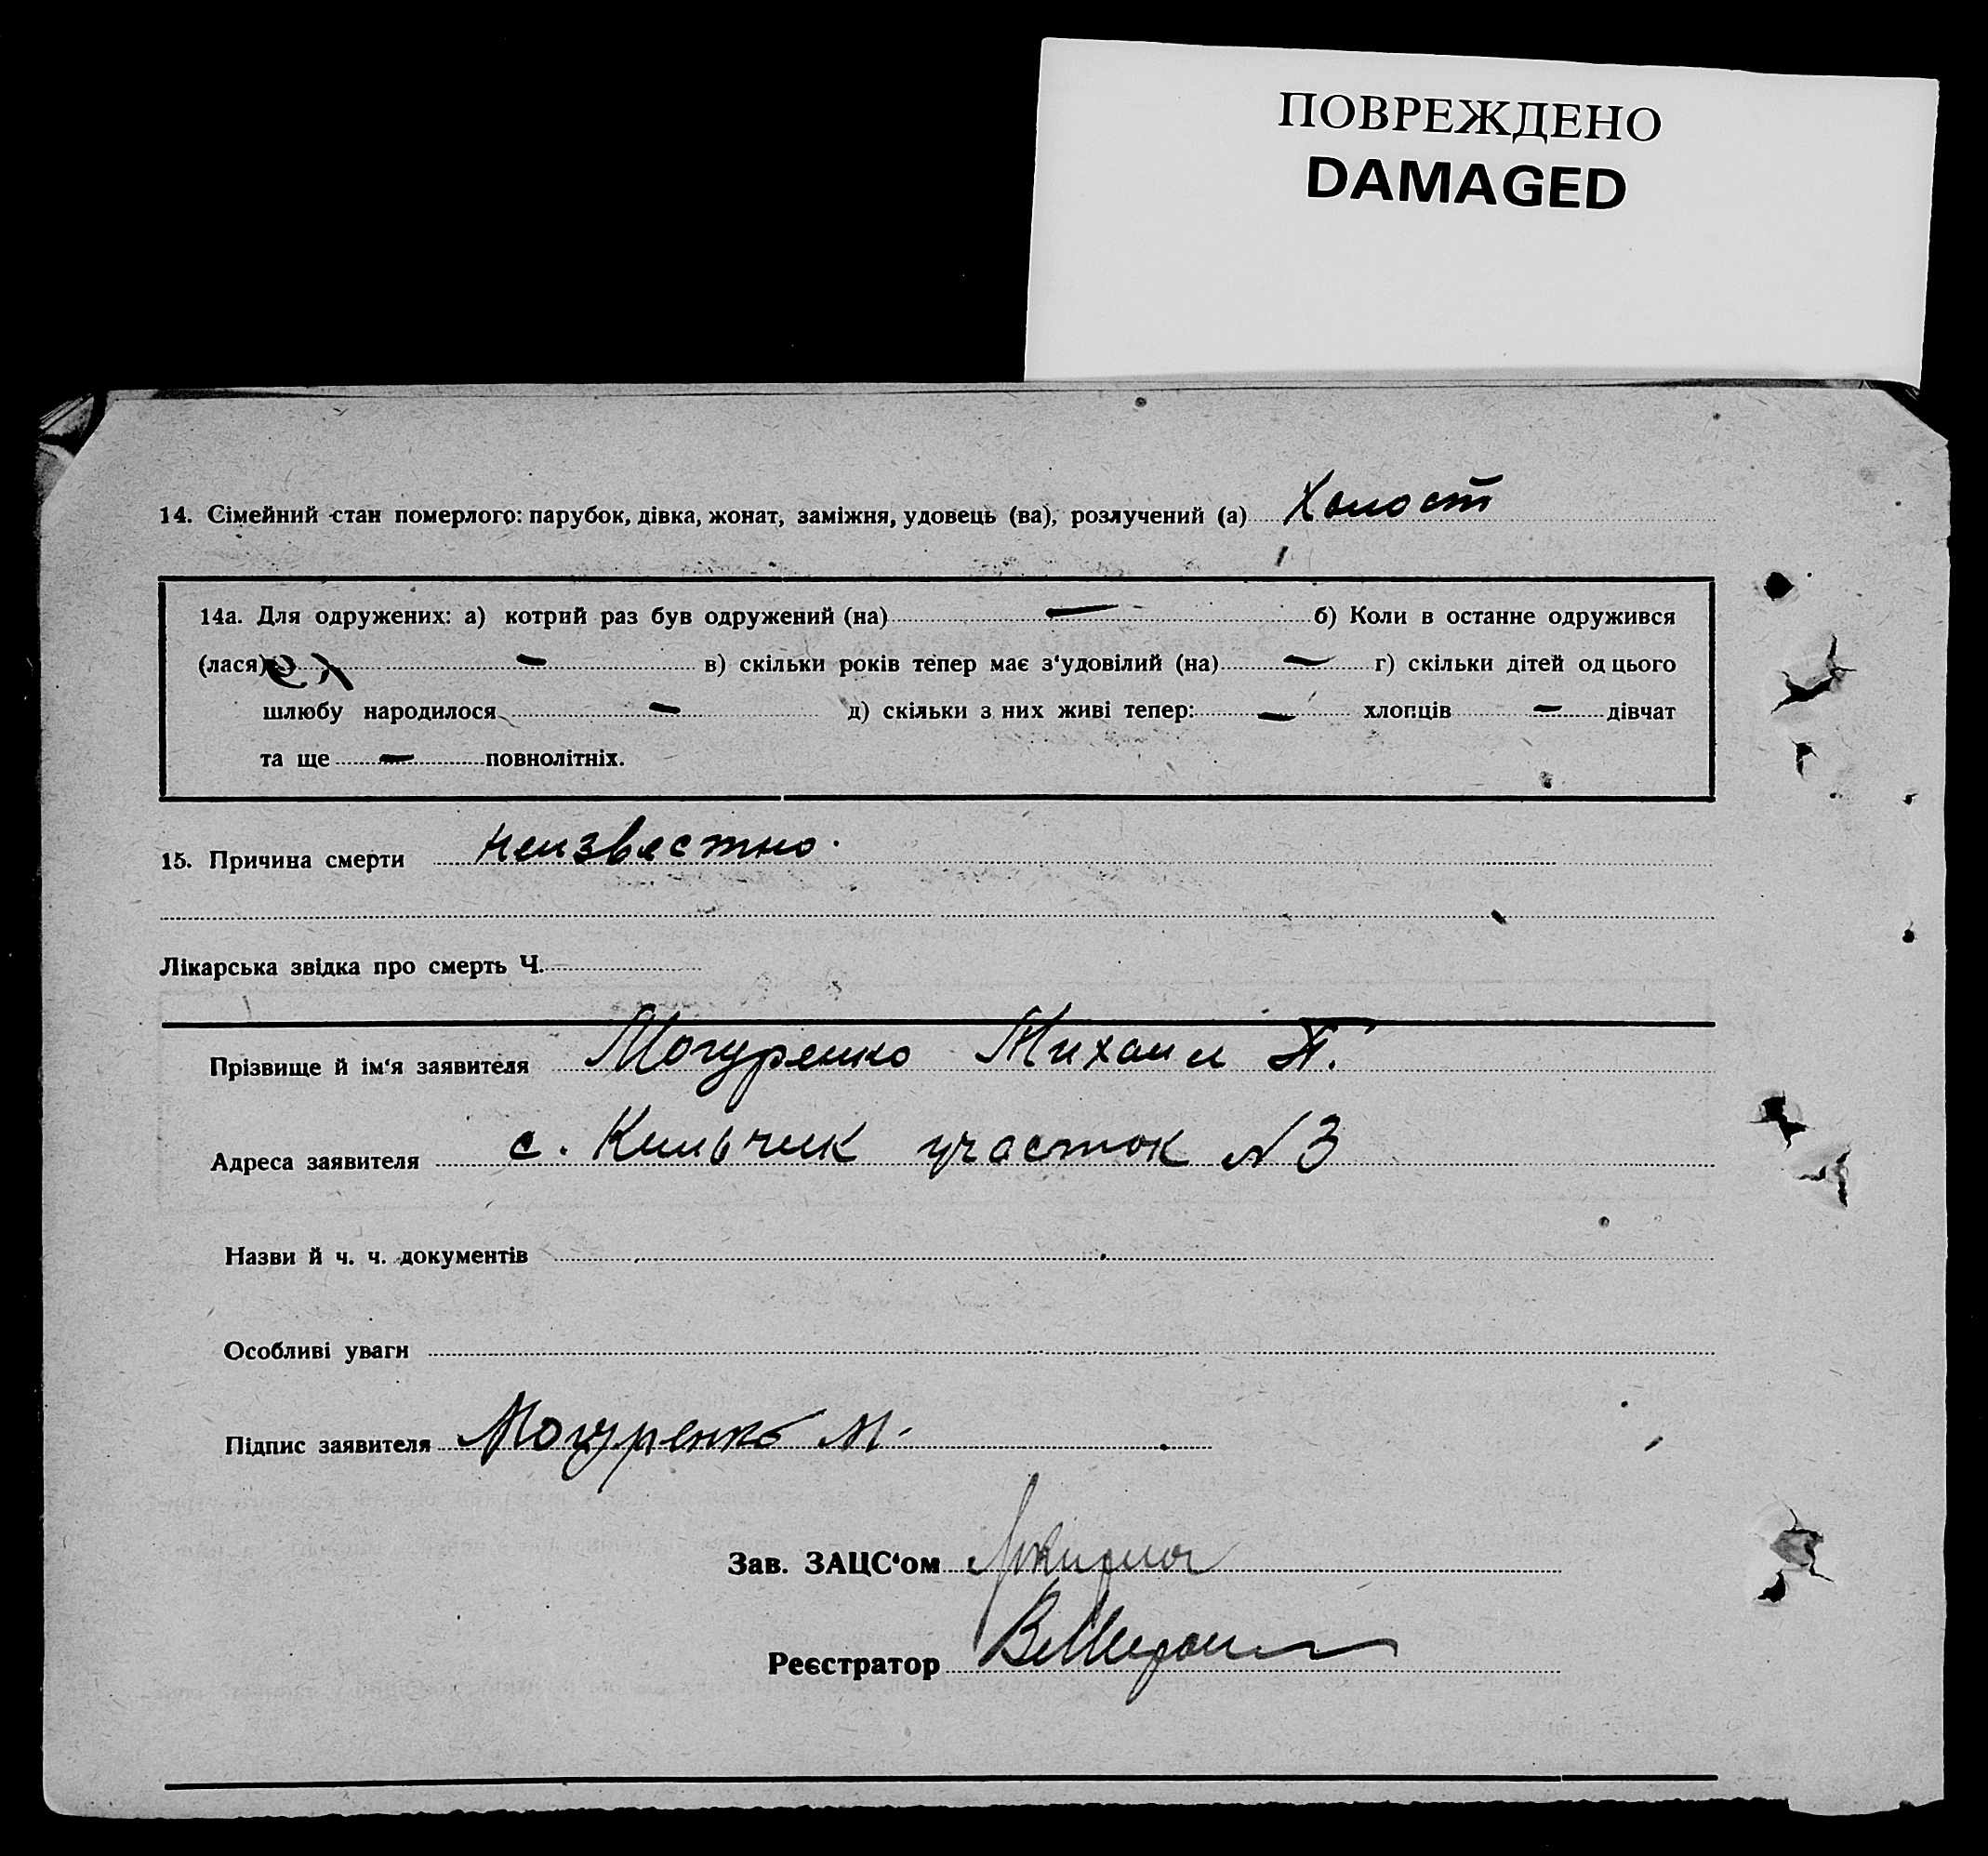 ПОВРЕЖДЕНО
DAMAGED
14. Сімейний стан померлого: парубок, дівка, жонат, заміжня, удовець (ва), розлучений (а) Холост
14а. Для одружених: а) котрий раз був одружений (на) — б) Коли в останнє одружився
(лася) — в) скільки років тепер має з'удовілий (на) — г) скільки дітей од цього
шлюбу народилося — д) скільки з них живі тепер: — хлопців — дівчат
та ще — повнолітніх.
15. Причина смерти неизвестно.
Лікарська звідка про смерть Ч.
Прізвище й ім'я заявителя Могуренко Михаил П.
Адреса заявителя с. Кильчик участок № 3
Назви й ч. ч. документів
Особливі уваги
Підпис заявителя Могуренко М.
Зав. ЗАЦС'ом
Реєстратор